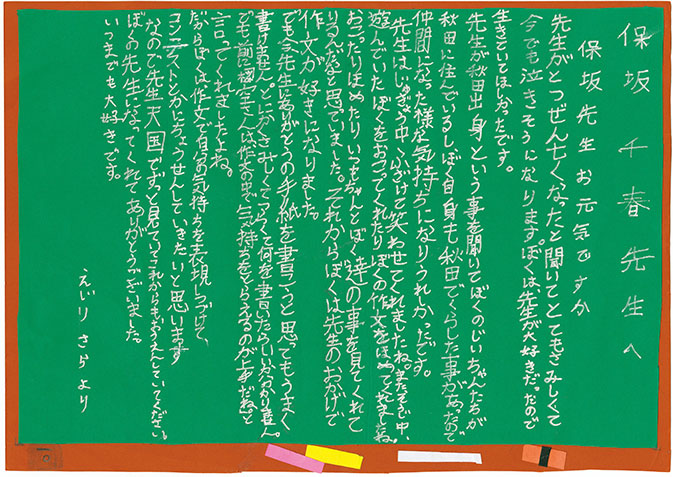 保坂千春先生へ
保坂先生お元気ですか
先生がとつぜん亡くなったと聞いてとてもさみしくて
今でも泣きそうになります。ぼくは先生が大好きだったので
生きていてほしかったです。
先生が秋田出身という事を聞いてぼくのじいちゃんたちが
秋田に住んでいるしぼく自身も秋田でくらした事があったので
仲間になった様な気持ちになりうれしかったです。
先生はじゅぎょう中、ふざけて笑わせてくれましたね。またそうじ中、
遊んでいたぼくをおこってくれたりぼくの作文をほめてくれましたね。
おこったりほめたりいつもちゃんとぼく達の事を見てくれて
いるんだなと思っていました。それからぼくは先生のおかげで
作文が好きになりました。
でも今、先生にありがとうの手紙を書こうと思ってもうまく
書けません。とにかくさみしくてつらくて何を書いたらいいかわかりません。
でも前に国立さんは作文の中で気持ちをとらえるのが上手だねと
言ってくれましたよね。
だからぼくは作文で自分の気持ちを表現しつづけて、
コンテストとかにちょうせんしていきたいと思います
なので先生、天国でずっと見ていてこれからもおうえんしていてください。
ぼくの先生になってくれてありがとうございました。
いつまでも大好きです。
えじりさらより